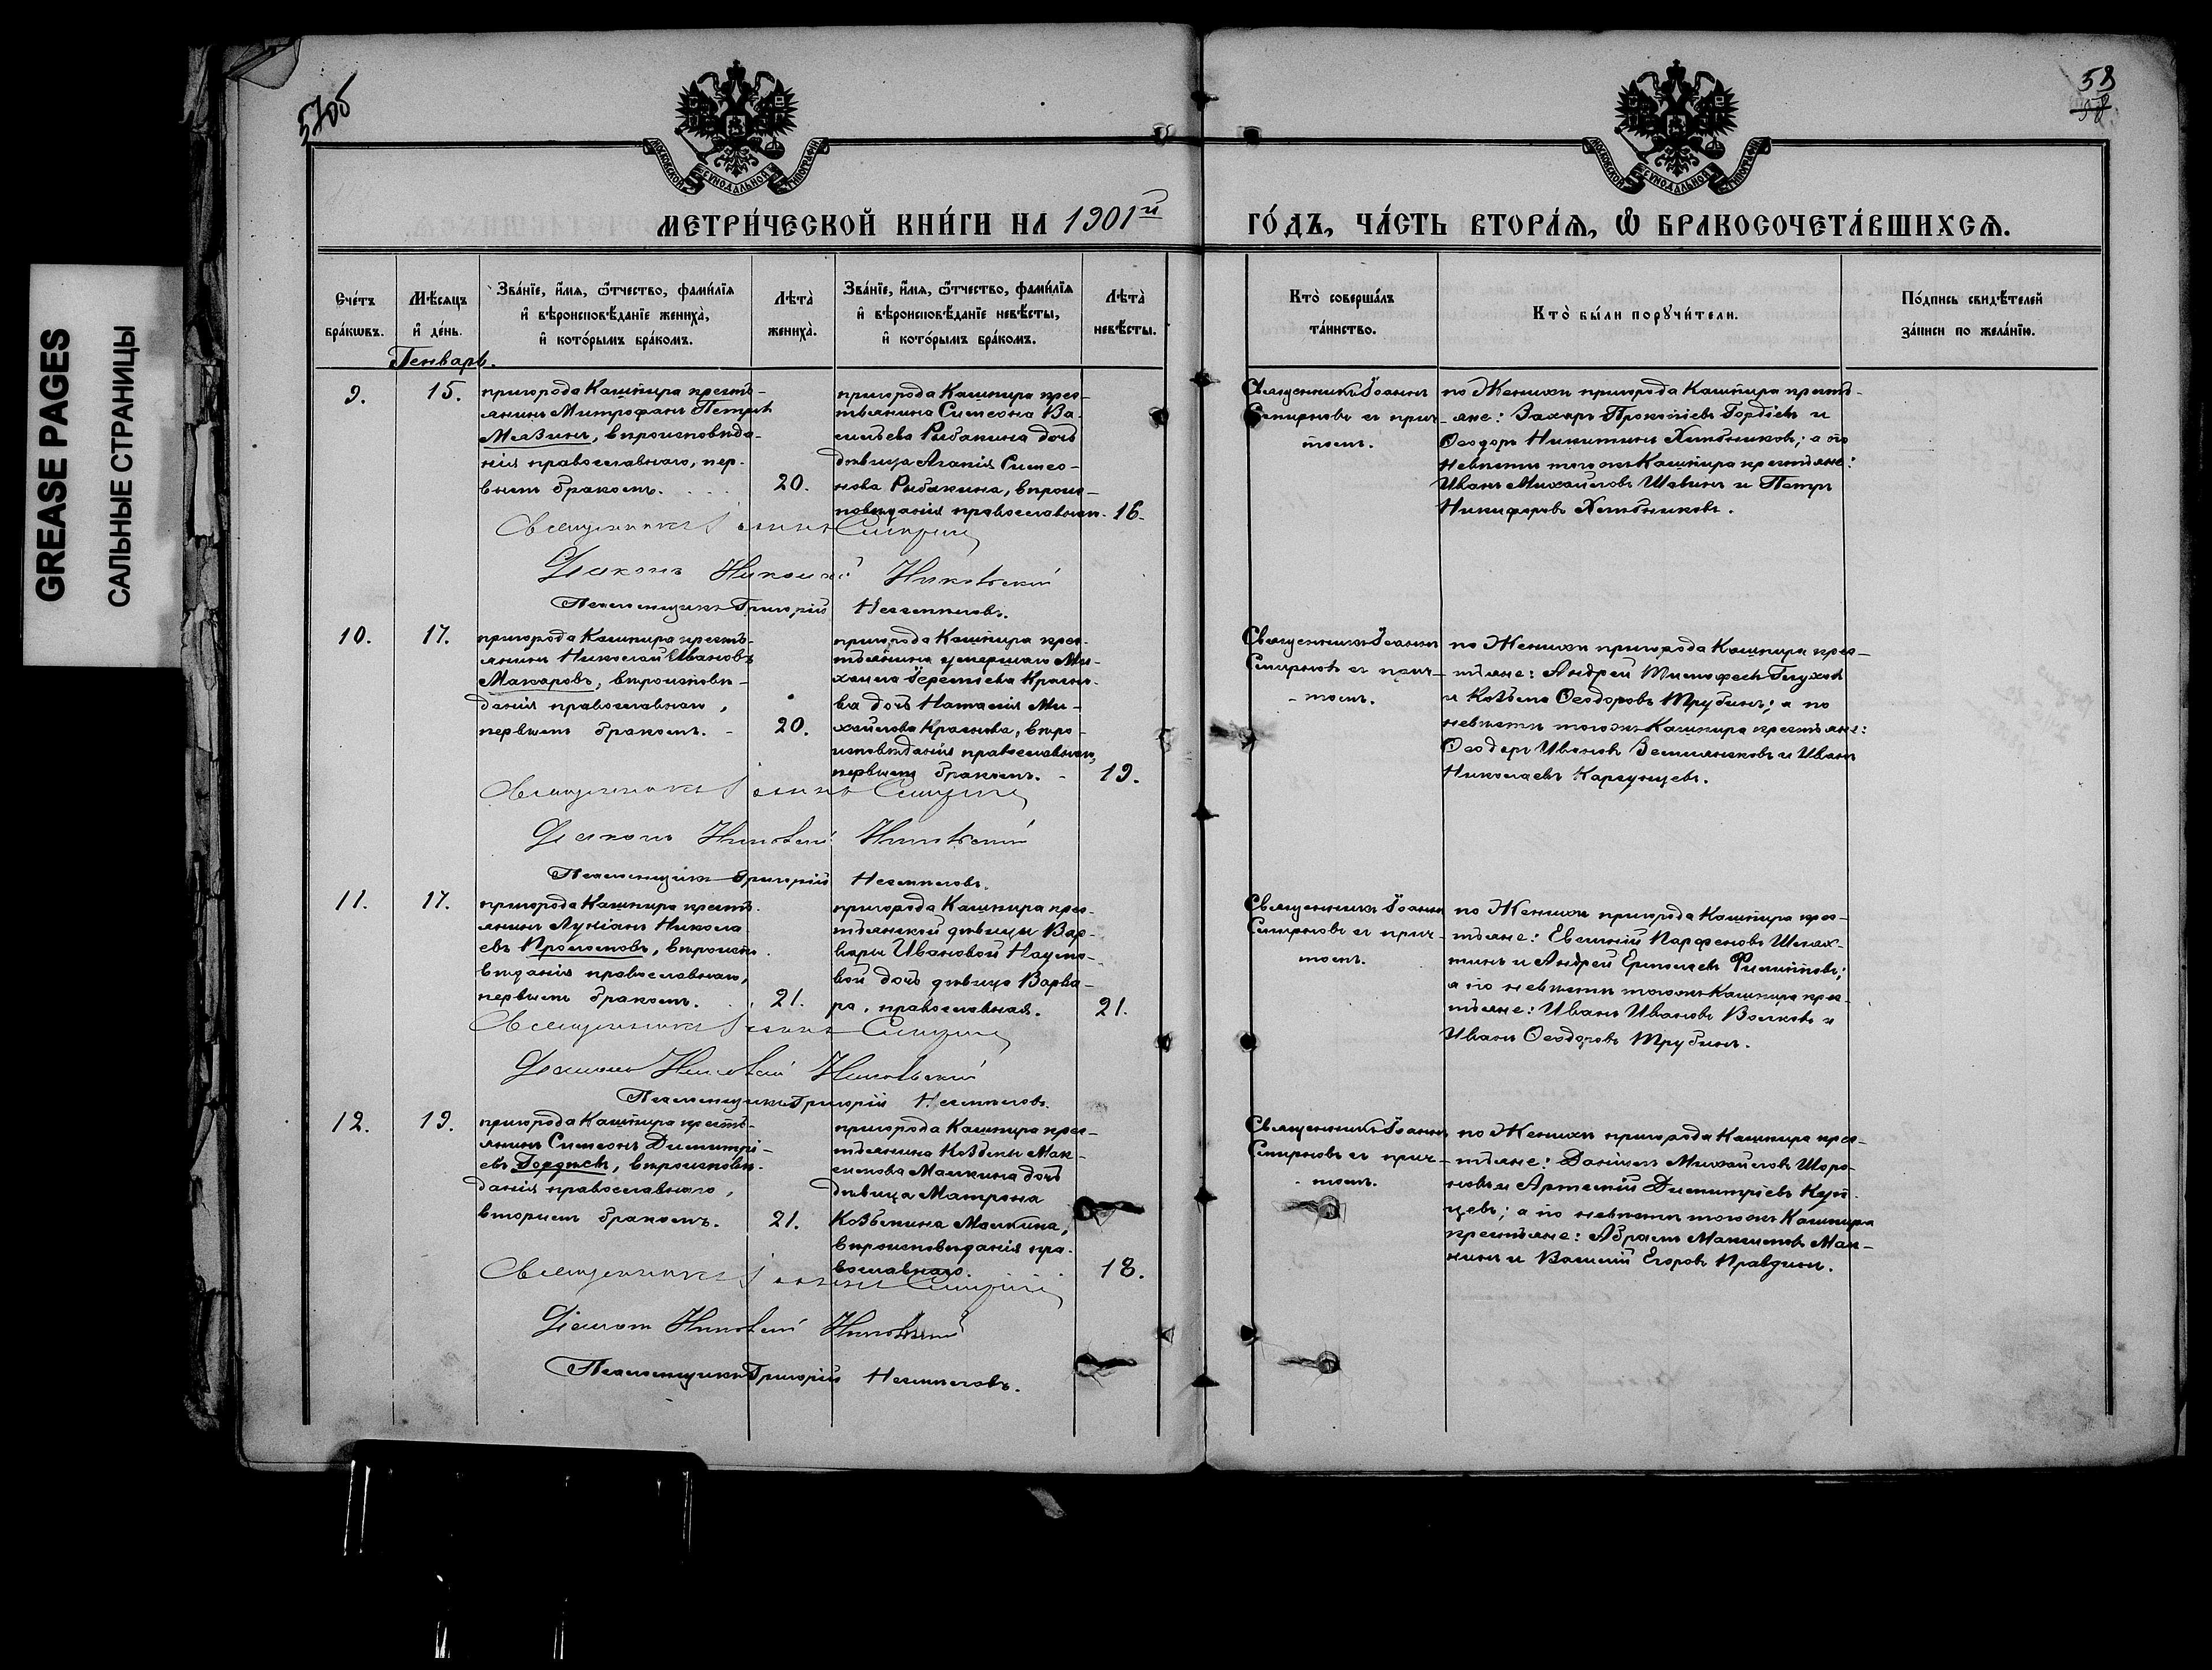 GREASE PAGES
САЛЬНЫЕ СТРАНИЦЫ
57об
58
58
МОСКОВСКОЙ СѴНОДАЛЬНОЙ ТИПОГРАФІИ
МОСКОВСКОЙ СѴНОДАЛЬНОЙ ТИПОГРАФІИ
МЕТРИ́ЧЕСКОЙ КНИ́ГИ НА 1901й
ГО́ДЪ, ЧА́СТЬ ВТОРА́Я, Ѡ БРАКОСОЧЕТА́ВШИХСЯ.
Сче́тъ
бра́кѡвъ.
Мѣ́сяцъ
и҆ де́нь.
Зва́нїе, и҆́мя, ѻ҆́тчество, фами́лїя
и҆ вѣроисповѣ́данїе жениха̀,
и҆ кото́рымъ бра́комъ.
Лѣта̀
жениха̀.
Зва́нїе, и҆́мя, ѻ҆́тчество, фами́лїя
и҆ вѣроисповѣ́данїе невѣ́сты,
и҆ кото́рымъ бра́комъ.
Лѣта̀
невѣ́сты.
Кто̀ соверша́лъ
та́инство.
Кто̀ бы́ли порꙋчи́тели.
По́дпись свидѣ́телей
за́писи по жела́нїю.
Генварь.
9.
15.
пригорода Кашпира кресть-
янинъ Митрофанъ Петровъ
Мазинъ, вѣроисповѣда-
нія православнаго, пер-
вымъ бракомъ.
20.
пригорода Кашпира крес-
тьянина Симеона Ва-
сильева Рыбакина дочь
дѣвица Агапія Симео-
нова Рыбакина, вѣроис-
повѣданія православнаго.
16.
Священникъ Іоаннъ
Смирновъ съ прич-
томъ.
по Женихѣ пригорода Кашпира кресть-
яне: Захаръ Прокопіевъ Гордѣевъ и
Ѳеодоръ Никитинъ Хлѣбниковъ; а по
невѣстѣ того-же Кашпира крестьяне:
Иванъ Михайловъ Шавинъ и Петръ
Никифоровъ Хлѣбниковъ.
Священникъ Іоаннъ Смирновъ
Діаконъ Николай Никольскій
Псаломщикъ Григорій Несмѣловъ.
10.
17.
пригорода Кашпира кресть-
янинъ Николай Ивановъ
Макаровъ, вѣроисповѣ-
данія православнаго,
первымъ бракомъ.
20.
пригорода Кашпира крес-
тьянина умершаго Ми-
хаила Іереміева Красно-
ва дочь Наталія Ми-
хайлова Краснова, вѣро-
исповѣданія православнаго,
первымъ бракомъ.
19.
Священникъ Іоаннъ
Смирновъ съ прич-
томъ.
по Женихѣ пригорода Кашпира крес-
тьяне: Андрей Тимофеевъ Глуховъ
и Козьма Ѳеодоровъ Трубинъ; а по
невѣстѣ того-же Кашпира крестьяне:
Ѳеодоръ Ивановъ Земляниковъ и Иванъ
Николаевъ Карсунцевъ.
Священникъ Іоаннъ Смирновъ
Діаконъ Николай Никольскій
Псаломщикъ Григорій Несмѣловъ.
11.
17.
пригорода Кашпира кресть-
янинъ Лукіанъ Никола
евъ Проломовъ, вѣроиспо-
вѣданія православнаго,
первымъ бракомъ.
21.
пригорода Кашпира крес-
тьянской дѣвицы Вар-
вары Ивановой Наумо-
вой дочь дѣвица Варва-
ра, православная.
21.
Священникъ Іоаннъ
Смирновъ съ прич-
томъ.
по Женихѣ пригорода Кашпира крес-
тьяне: Евгеній Парфеновъ Шелах-
тинъ и Андрей Ермолаевъ Филипповъ;
а по невѣстѣ того-же Кашпира крес-
тьяне: Иванъ Ивановъ Волковъ и
Иванъ Ѳеодоровъ Трубинъ.
Священникъ Іоаннъ Смирновъ
Діаконъ Николай Никольскій
Псаломщикъ Григорій Несмѣловъ.
12.
19.
пригорода Кашпира кресть-
янинъ Симеонъ Димитрі-
евъ Гордѣевъ, вѣроисповѣ-
данія православнаго,
вторымъ бракомъ.
21.
пригорода Кашпира крес-
тьянина Козьмы Мак-
симова Малкина дочь
дѣвица Матрона
Козьмина Малкина,
вѣроисповѣданія пра-
вославнаго.
18.
Священникъ Іоаннъ
Смирновъ съ прич-
томъ.
по Женихѣ пригорода Кашпира крес-
тьяне: Даніилъ Михайловъ Шоро-
ховъ и Артемій Димитріевъ Куп-
цевъ; а по невѣстѣ того-же Кашпира
крестьяне: Абрамъ Максимовъ Мал-
кинъ и Василій Егоровъ Правдинъ.
Священникъ Іоаннъ Смирновъ
Діаконъ Николай Никольскій
Псаломщикъ Григорій Несмѣловъ.